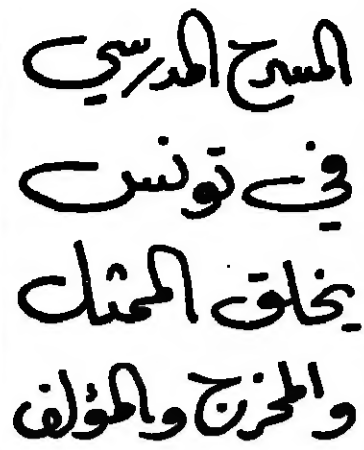 المسرح المدرسي
في تونس
يخلق الممثل
والمخرج والمؤلف